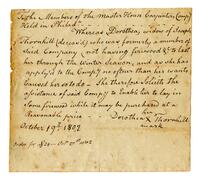 To the Members of the Master House Carpenters Compy
Held in Philada
Whereas Dorothea, widow of Joseph
Thornhill (deceas'd) who was formerly a member of
said Company, not having firewood &c to last
her through the Winter Season, and as she has
applyd to the Compy no other than her wants
caused her so to do - She therefore Solicits the
assistance of said Company to Enable her to lay in
Some firewood while it may be purchased at a
Reasonable price -
her
Dorothea X Thornhill
mark
October 19th 1802